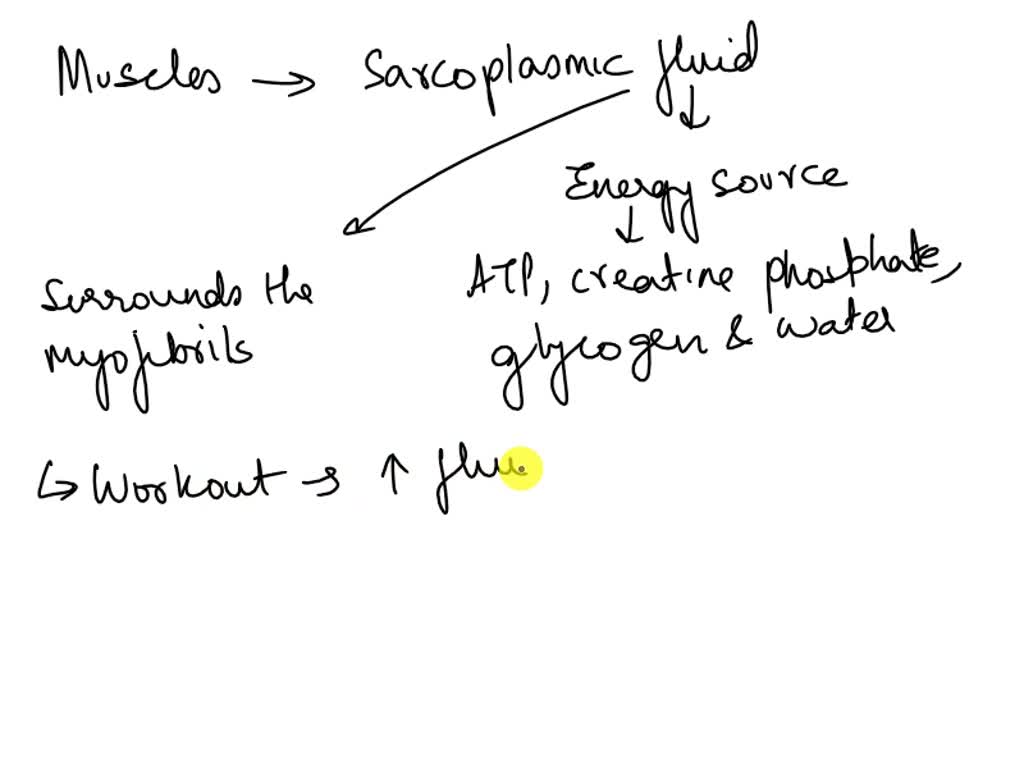 Muscles → Sarcoplasmic fluid
↓
Energy source
↓
Surrounds the
myofibrils
ATP, creatine phosphate,
glycogen & water
↳ Workout → ↑ flui